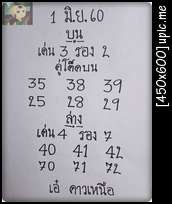 1 มิ.ย. 60
บน
เด่น 3 รอง 2
คู่โต๊ดบน
35 38 39
25 28 29
ล่าง
เด่น 4 รอง 7
40 41 42
70 71 72
เอ๋ ดาวเหนือ
[450x600] upic.me